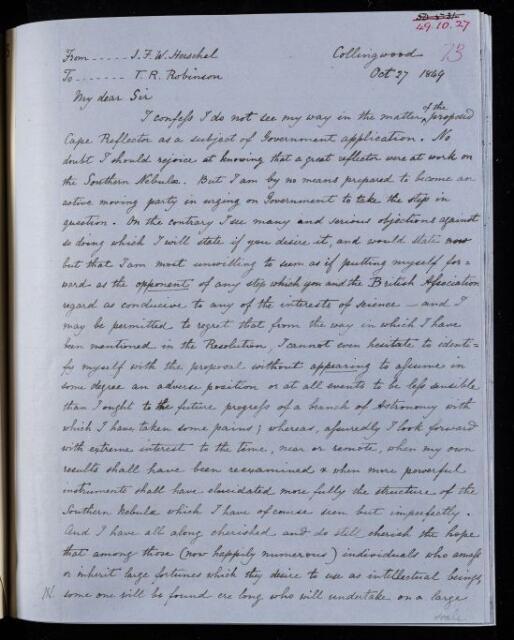 49.10.27
73
From ------ J. F. W. Herschel
Collingwood
To ------- T. R. Robinson
Oct 27 1849
My dear Sir
I confess I do not see my way in the matter of the proposed
Cape Reflector as a subject of Government application. No
doubt I should rejoice at knowing that a great reflector were at work on
the Southern Nebulæ. But I am by no means prepared to become an
active moving party in urging on Government to take the step in
question. On the contrary I see many and serious objections against
so doing which I will state if you desire it, and would state now
but that I am most unwilling to seem as if putting myself for=
ward as the opponent of any step which you and the British Association
regard as conducive to any of the interests of science – and I
may be permitted to regret that from the way in which I have
been mentioned in the Resolution, I cannot even hesitate to identi=
fy myself with the proposal without appearing to assume in
some degree an adverse position or at all events to be less sensible
than I ought to the future progress of a branch of Astronomy with
which I have taken some pains; whereas, assuredly I look forward
with extreme interest to the time, near or remote, when my own
results shall have been reexamined & when more powerful
instruments shall have elucidated more fully the structure of the
Southern Nebulæ which I have of course seen but imperfectly.
And I have all along cherished and do still cherish the hope
that among those (now happily numerous) individuals who amass
or inherit large fortunes which they desire to use as intellectual beings,
some one will be found ere long who will undertake on a large
scale